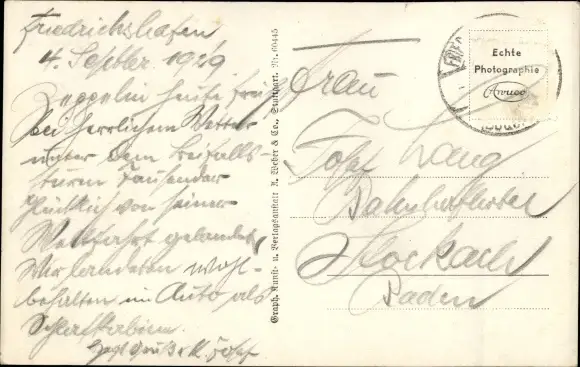 Friedrichshafen
4. Septbr. 1929
Zeppelin heute früh
bei herrlichem Wetter
unter dem Beifalls-
sturm Tausender
glücklich von seiner
Weltfahrt gelandet,
Wir landeten wohl-
behalten im Auto als
Schlafkabine.
Graph. Kunst- u. Verlagsanstalt A. Weber & Co., Stuttgart. Nr. 60445
Echte
Photographie
Frau
Josef Lang
Bahnhofhotel
Stockach
Baden